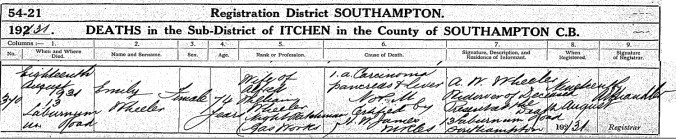 54-21 Registration District SOUTHAMPTON.
1931. DEATHS in the Sub-District of ITCHEN in the County of SOUTHAMPTON C.B.
Columns :— 1. 2. 3. 4. 5. 6. 7. 8. 9.
No. When and Where Died. Name and Surname. Sex. Age. Rank or Profession. Cause of Death. Signature, Description, and Residence of Informant. When Registered. Signature of Registrar.
370
Eighteenth
August
1931
13
Laburnum
Road
Emily
Wheeler
Female
74
Years
Wife of
Alfred
William
Wheeler
Night Watchman
Gas Works
1.a. Carcinoma
pancreas & liver
No P.M.
Certified by
James
A. W. Wheeler
Widower of Deceased
Present at the Death
13 Laburnum Road
Southampton
August
1931
Registrar